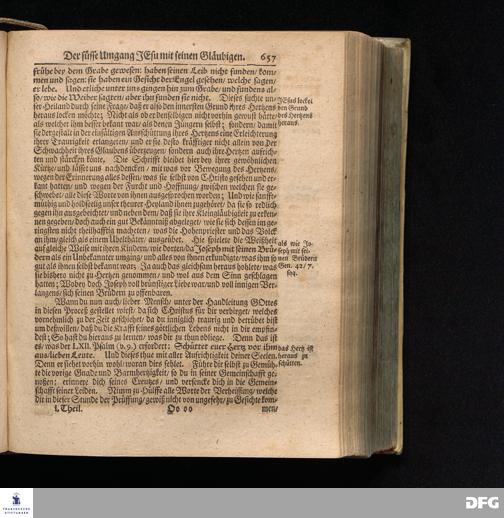 Der süsse Umgang JEsu mit seinen Gläubigen. 657
frühe bey dem Grabe gewesen: haben seinen Leib nicht funden/ kom-
men und sagen: sie haben ein Gesicht der Engel gesehen/ welche sagen/
er lebe. Und etliche unter uns gingen hin zum Grabe/ und fundens al-
so/ wie die Weiber sagten/ aber ihn funden sie nicht. Dieses suchte un-
ser Heiland durch seine Frage/ daß er also den innersten Grund ihres Hertzens
heraus locken möchte; Nicht als ob er denselbigen nicht vorhin gewust hätte/
als welcher ihm besser bekant war/ als denen Jüngern selbst; sondern/ damit
sie dergestalt in der einfältigen Ausschüttung ihres Hertzens eine Erleichterung
ihrer Traurigkeit erlangeten/ und er sie desto kräfftiger nicht allein von der
Schwachheit ihres Glaubens überzeugen/ sondern auch ihre Hertzen aufrich-
ten und stärcken könte. Die Schrifft bleibet hier bey ihrer gewöhnlichen
Kürtze/ und lässet uns nachdencken/ mit was vor Bewegung des Hertzens/
wegen der Erinnerung alles dessen/ was sie selbst von Christo gesehen und er-
kant hatten/ und wegen der Furcht und Hoffnung/ zwischen welchen sie ge-
schwebet/ alle diese Worte von ihnen ausgesprochen worden; Und wie sanfft-
müthig und holdseelig unser theurer Heyland ihnen zugehöret/ da sie so redlich
gegen ihn ausgebeichtet/ und neben dem/ daß sie ihre Kleingläubigkeit zu erken-
nen gegeben/ doch auch ein gut Bekäntniß abgeleget/ wie sie sich dessen im ge-
ringsten nicht theilhafftig macheten/ was die Hohenpriester und das Volck
an ihm/ gleich als einem Ubelthäter/ ausgeübet. Hie spielete die Weißheit
auf gleiche Weise mit ihren Kindern/ wie dorten/ da Joseph mit seinen Brü-
dern als ein Unbekannter umging/ und alles von ihnen erkundigte/ was ihm so
gut als ihnen selbst bekant war; Ja auch das gleichsam heraus hohlete/ was
sie bishero nicht zu Hertzen genommen/ und wol aus dem Sinn geschlagen
hatten; Wobey doch Joseph voll brünstiger Liebe war/ und voll innigen Ver-
langens/ sich seinen Brüdern zu offenbaren.
Wann du nun auch/ lieber Mensch/ unter der Handleitung GOttes
in diesen Proceß gestellet wirst/ da sich Christus für dir verbirget/ welches
vornehmlich zu der Zeit geschiehet/ da du inniglich traurig und betrübet bist
um deßwillen/ daß du die Krafft seines göttlichen Lebens nicht in dir empfin-
dest; So hast du hieraus zu lernen/ was dir zu thun obliege. Denn das ist
es/ was der LXII. Psalm (v. 9.) erfordert: Schüttet euer Hertz vor ihm
aus/ lieben Leute. Und dieses thue mit aller Aufrichtigkeit deiner Seelen.
Denn er siehet vorhin wohl/ woran dirs fehlet. Führe dir selbst zu Gemüh-
te die vorige Gnade und Barmhertzigkeit/ so du in seiner Gemeinschafft ge-
noßen; erinnere dich seines Creutzes/ und versencke dich in die Gemein-
schafft seiner Leiden. Nimm zu Hülffe alle Worte der Verheissung/ welche
dir in dieser Stunde der Prüffung/ gewiß nicht von ungefehr/ zu Gesichte kom-
I. Theil. Oo oo men/
JEsus locket
den Grund
des Hertzens
heraus.
als wie Jo-
seph mit sei-
nen Brüdern
Gen. 42/ 7.
sqq.
das Hertz ist
heraus zu
schütten.
FRANCKESCHE
STIFTUNGEN
DFG